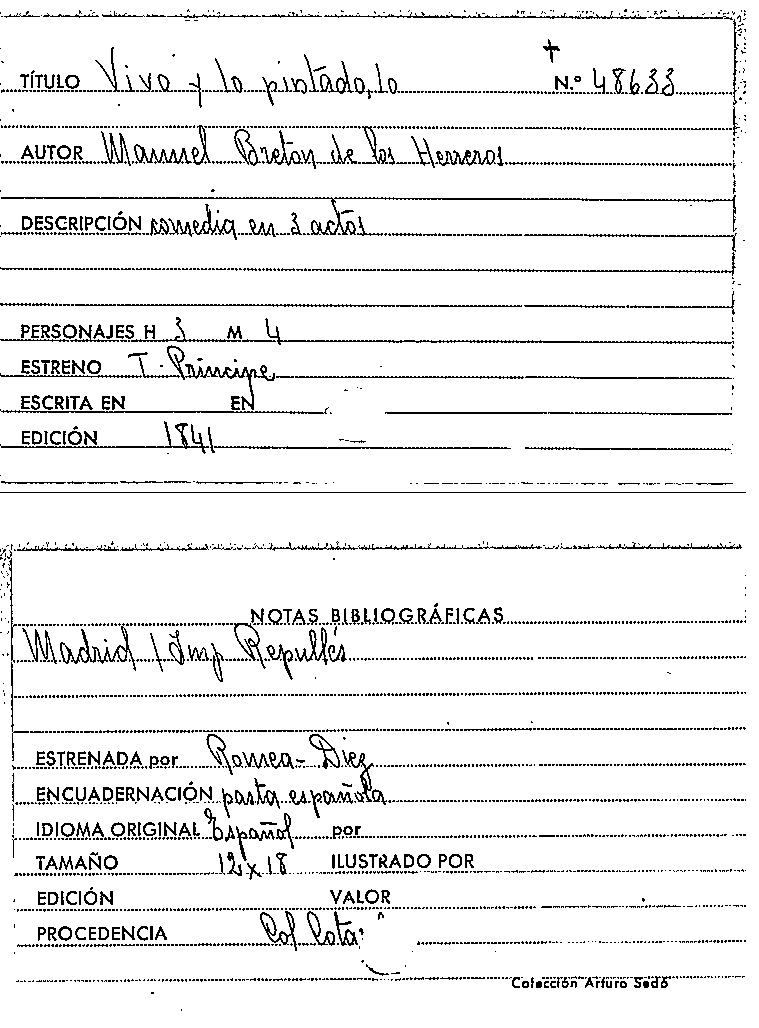 TÍTULO Vivo y lo pintado, lo N.º 48633
AUTOR Manuel Breton de los Herreros
DESCRIPCIÓN comedia en 3 actos
PERSONAJES H 3 M 4
ESTRENO T. Principe
ESCRITA EN EN
EDICIÓN 1841
NOTAS BIBLIOGRÁFICAS
Madrid / Imp Repullés
ESTRENADA por Romea - Diez
ENCUADERNACIÓN pasta española
IDIOMA ORIGINAL Español por
TAMAÑO 12 x 18 ILUSTRADO POR
EDICIÓN VALOR
PROCEDENCIA Col Cota
Colección Arturo Sedó